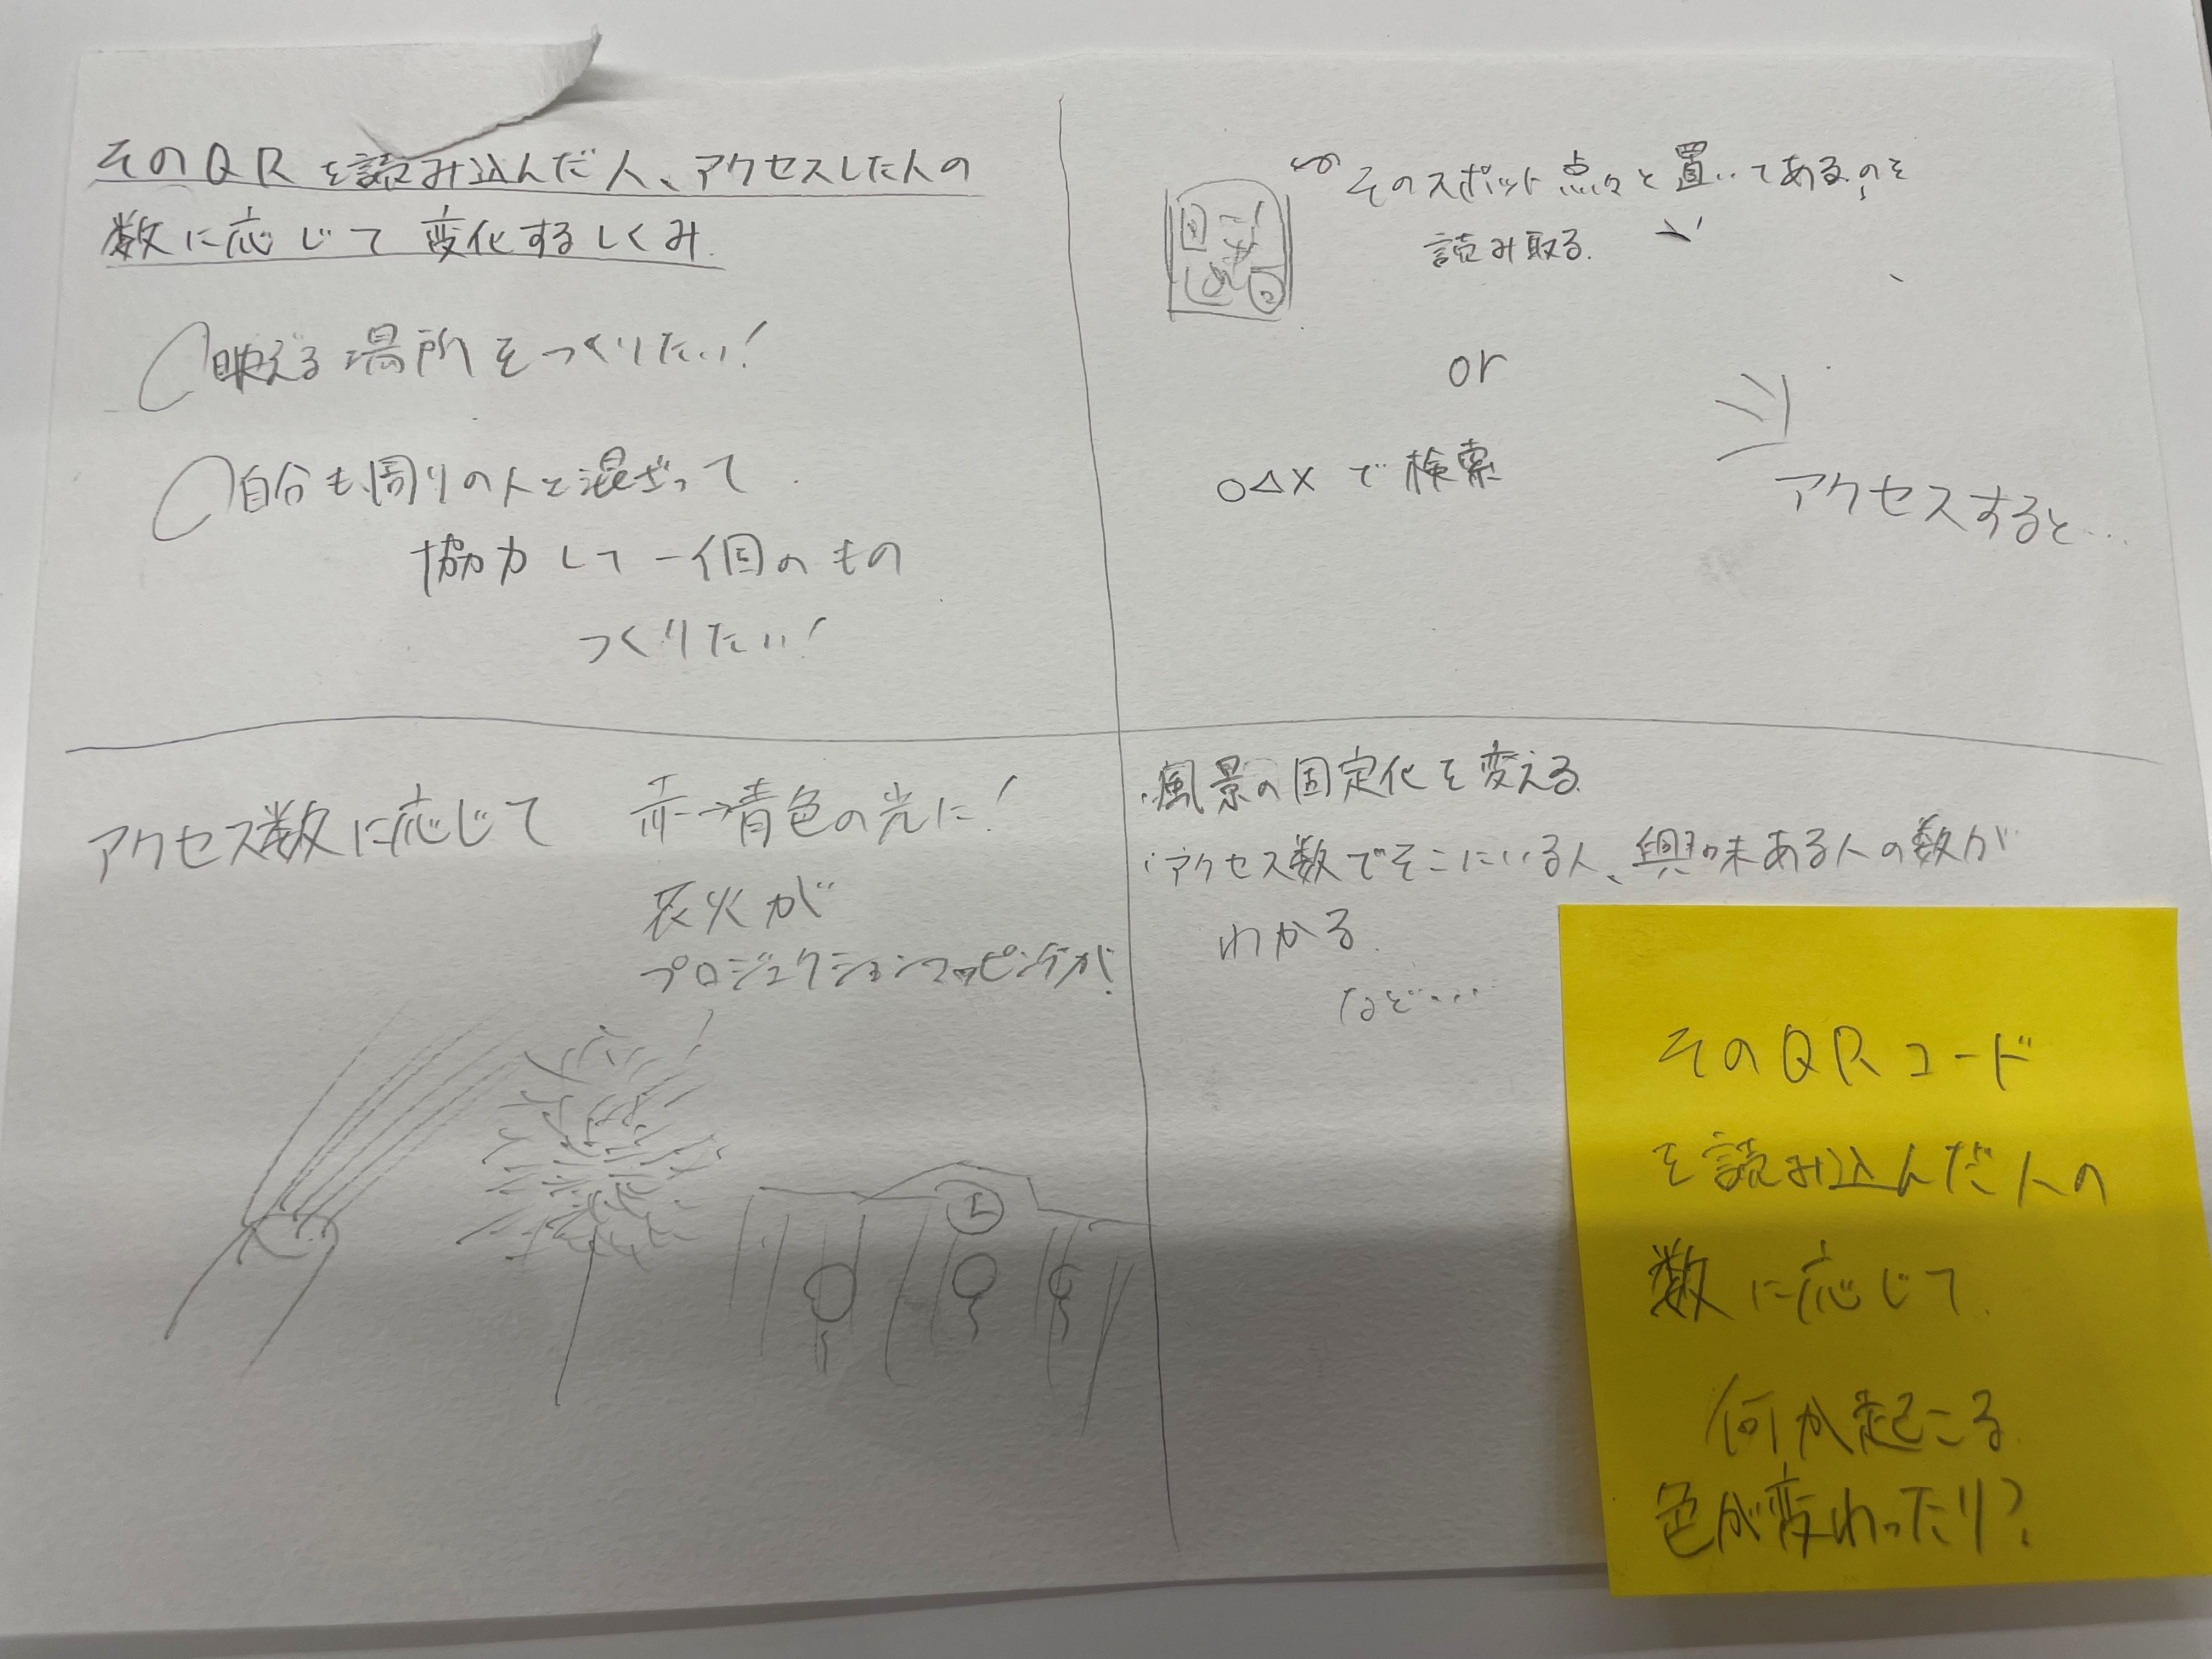 そのQRを読み込んだ人、アクセスした人の
数に応じて変化するしくみ.
映える場所をつくりたい!
自分も周りの人と混ざって
協力して一個のもの
つくりたい!
そのスポット点々と置いてあるのを
読み取る.
or
○△×で検索
アクセスすると…
アクセス数に応じて
赤→青色の光に!
花火が
プロジェクションマッピングが!
・風景の固定化を変える
・アクセス数でそこにいる人、興味ある人の数が
わかる.
など…
そのQRコード
を読み込んだ人の
数に応じて.
何か起こる
色が変わったり?